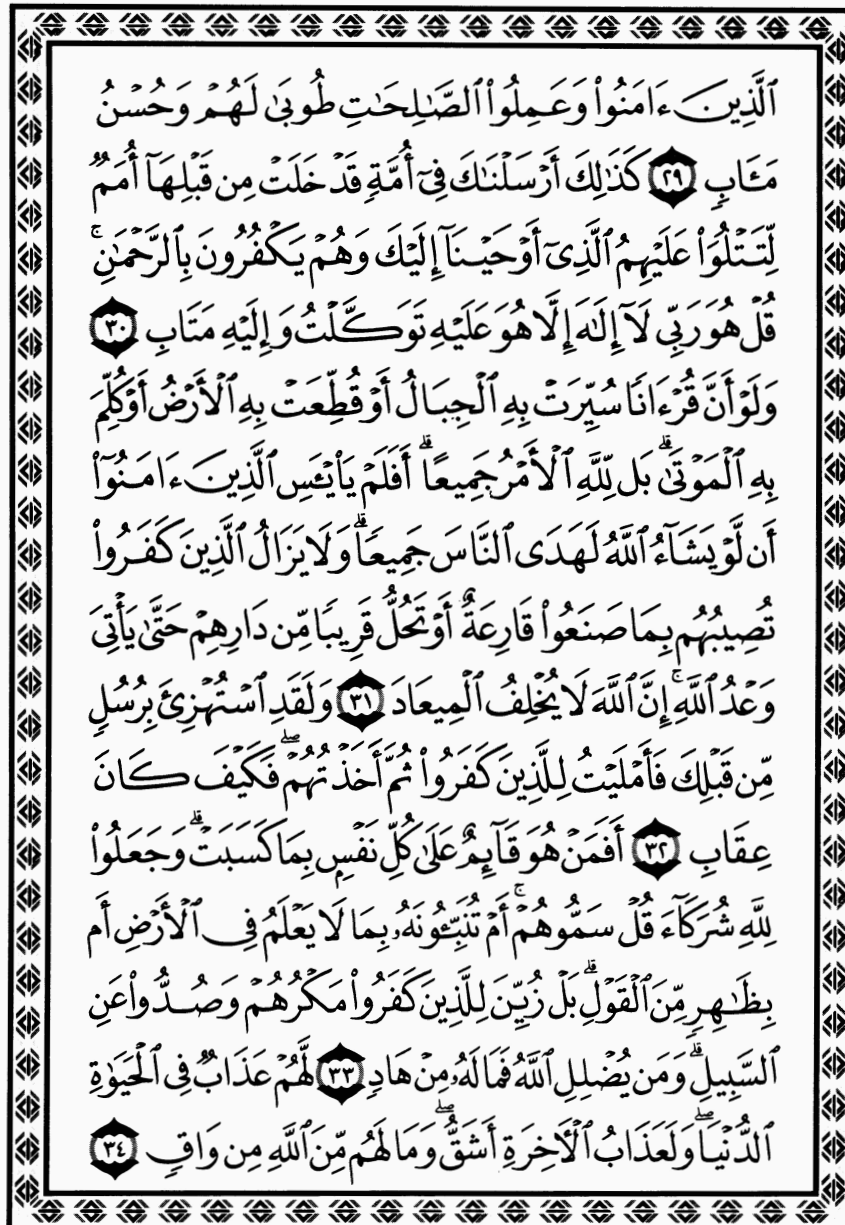 ٱلَّذِينَ ءَامَنُواْ وَعَمِلُواْ ٱلصَّـٰلِحَـٰتِ طُوبَىٰ لَهُمۡ وَحُسۡنُ
مَـَٔابٖ ٢٩ كَذَٰلِكَ أَرۡسَلۡنَـٰكَ فِيٓ أُمَّةٖ قَدۡ خَلَتۡ مِن قَبۡلِهَآ أُمَمٞ
لِّتَتۡلُوَاْ عَلَيۡهِمُ ٱلَّذِيٓ أَوۡحَيۡنَآ إِلَيۡكَ وَهُمۡ يَكۡفُرُونَ بِٱلرَّحۡمَـٰنِۚ
قُلۡ هُوَ رَبِّي لَآ إِلَـٰهَ إِلَّا هُوَ عَلَيۡهِ تَوَكَّلۡتُ وَإِلَيۡهِ مَتَابِ ٣٠
وَلَوۡ أَنَّ قُرۡءَانٗا سُيِّرَتۡ بِهِ ٱلۡجِبَالُ أَوۡ قُطِّعَتۡ بِهِ ٱلۡأَرۡضُ أَوۡ كُلِّمَ
بِهِ ٱلۡمَوۡتَىٰۗ بَل لِّلَّهِ ٱلۡأَمۡرُ جَمِيعًاۗ أَفَلَمۡ يَاْيۡـَٔسِ ٱلَّذِينَ ءَامَنُوٓاْ
أَن لَّوۡ يَشَآءُ ٱللَّهُ لَهَدَى ٱلنَّاسَ جَمِيعٗاۗ وَلَا يَزَالُ ٱلَّذِينَ كَفَرُواْ
تُصِيبُهُم بِمَا صَنَعُواْ قَارِعَةٌ أَوۡ تَحُلُّ قَرِيبٗا مِّن دَارِهِمۡ حَتَّىٰ يَأۡتِيَ
وَعۡدُ ٱللَّهِۚ إِنَّ ٱللَّهَ لَا يُخۡلِفُ ٱلۡمِيعَادَ ٣١ وَلَقَدِ ٱسۡتُهۡزِئَ بِرُسُلٖ
مِّن قَبۡلِكَ فَأَمۡلَيۡتُ لِلَّذِينَ كَفَرُواْ ثُمَّ أَخَذۡتُهُمۡۖ فَكَيۡفَ كَانَ
عِقَابِ ٣٢ أَفَمَنۡ هُوَ قَآئِمٌ عَلَىٰ كُلِّ نَفۡسِۭ بِمَا كَسَبَتۡۗ وَجَعَلُواْ
لِلَّهِ شُرَكَآءَ قُلۡ سَمُّوهُمۡۚ أَمۡ تُنَبِّـُٔونَهُۥ بِمَا لَا يَعۡلَمُ فِي ٱلۡأَرۡضِ أَم
بِظَـٰهِرٖ مِّنَ ٱلۡقَوۡلِۗ بَلۡ زُيِّنَ لِلَّذِينَ كَفَرُواْ مَكۡرُهُمۡ وَصُدُّواْ عَنِ
ٱلسَّبِيلِۗ وَمَن يُضۡلِلِ ٱللَّهُ فَمَا لَهُۥ مِنۡ هَادٖ ٣٣ لَّهُمۡ عَذَابٞ فِي ٱلۡحَيَوٰةِ
ٱلدُّنۡيَاۖ وَلَعَذَابُ ٱلۡأٓخِرَةِ أَشَقُّۖ وَمَا لَهُم مِّنَ ٱللَّهِ مِن وَاقٖ ٣٤